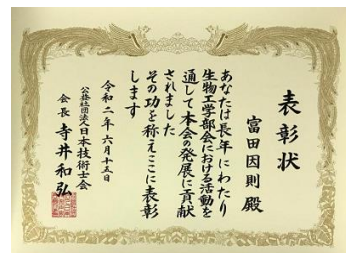 表彰状
富田因則 殿
あなたは長年にわたり
生物工学部会における活動を
通して本会の発展に貢献
されました
その功を称えここに表彰
します
令和二年六月十五日
公益社団法人日本技術士会
会長 寺井和弘